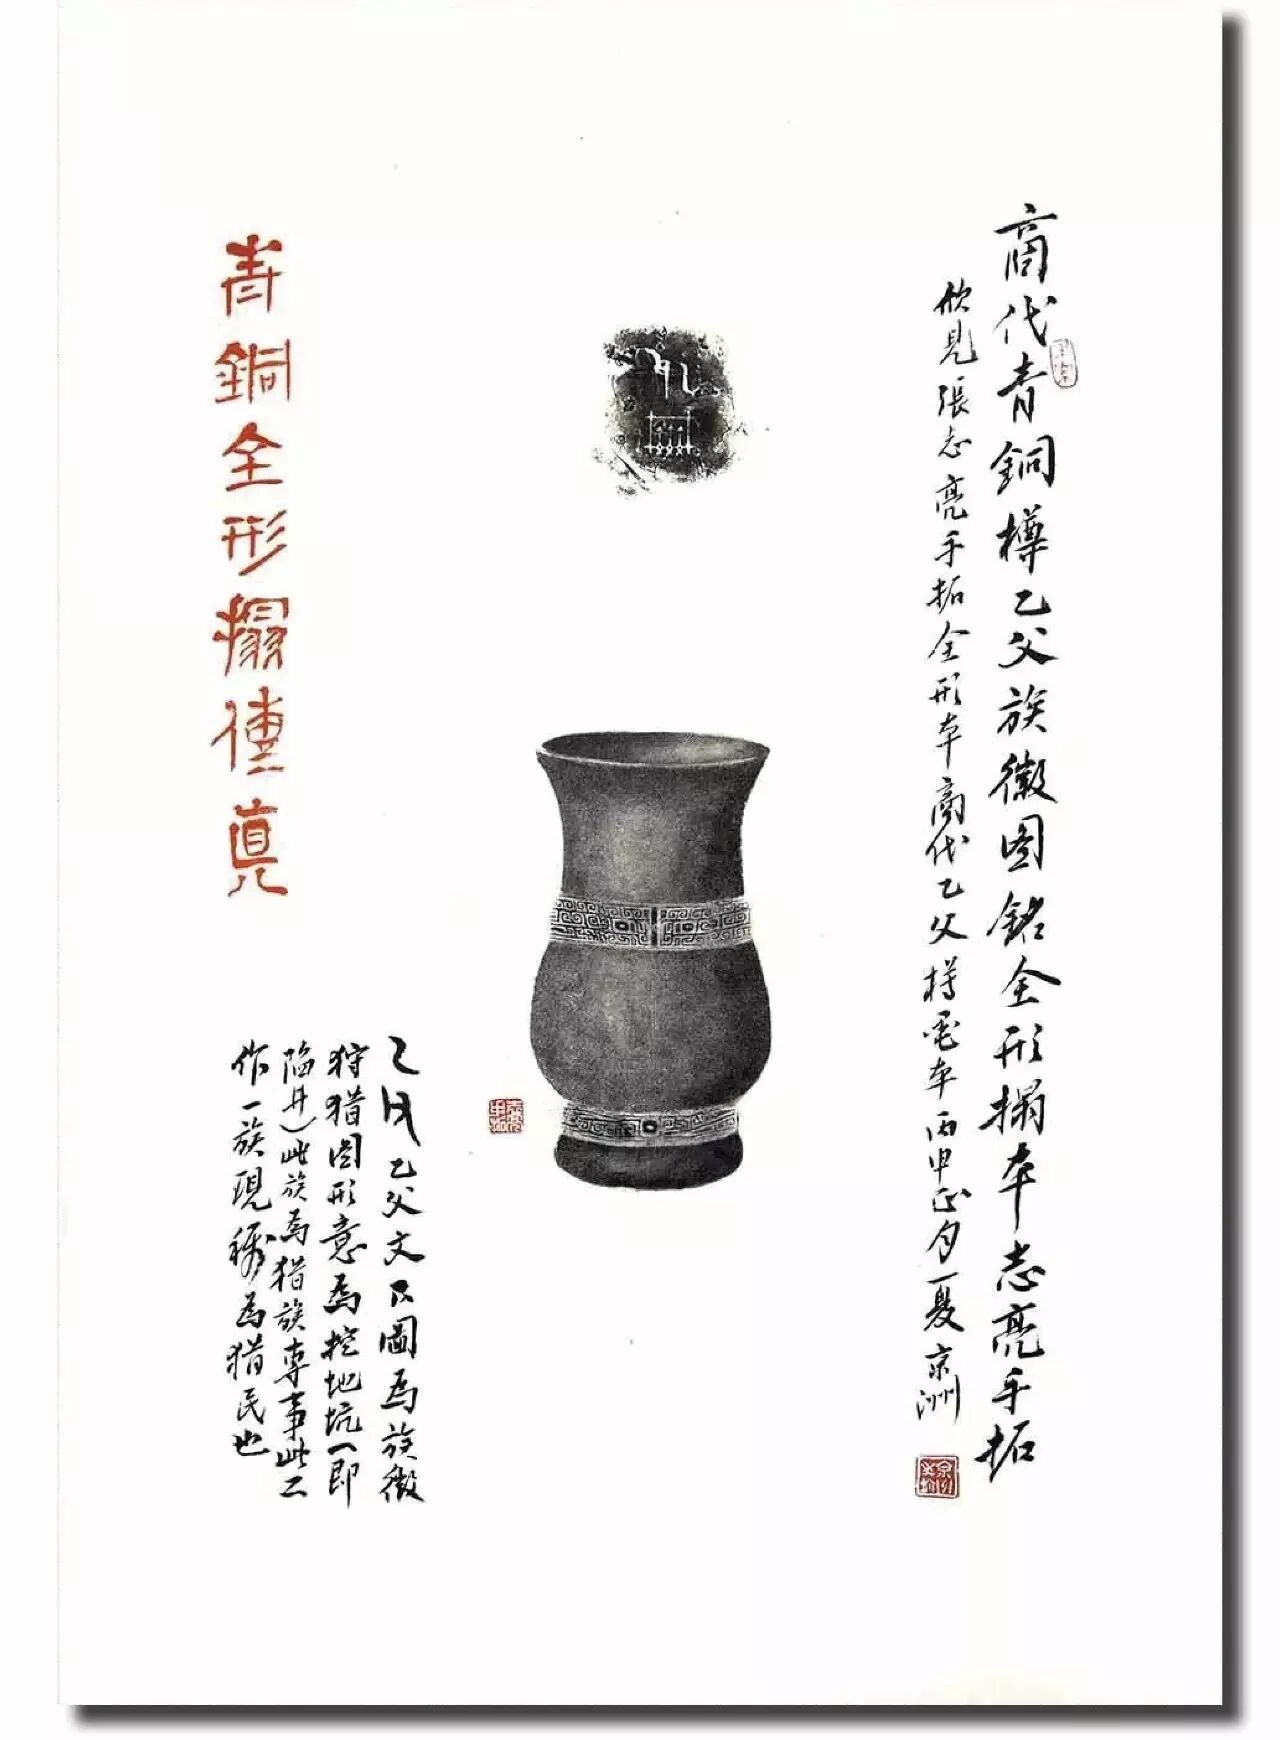 商代青銅樽乙父族徽图銘全形搨本志亮手拓
欣見張志亮手拓全形本商代乙父樽
本丙申正月夏京洲
青銅全形搨傳真
乙父文下圖為族徽
狩猎图形意為挖地坑(即
陷井)此族為猎族專事此工
作一族現稱為猎民也